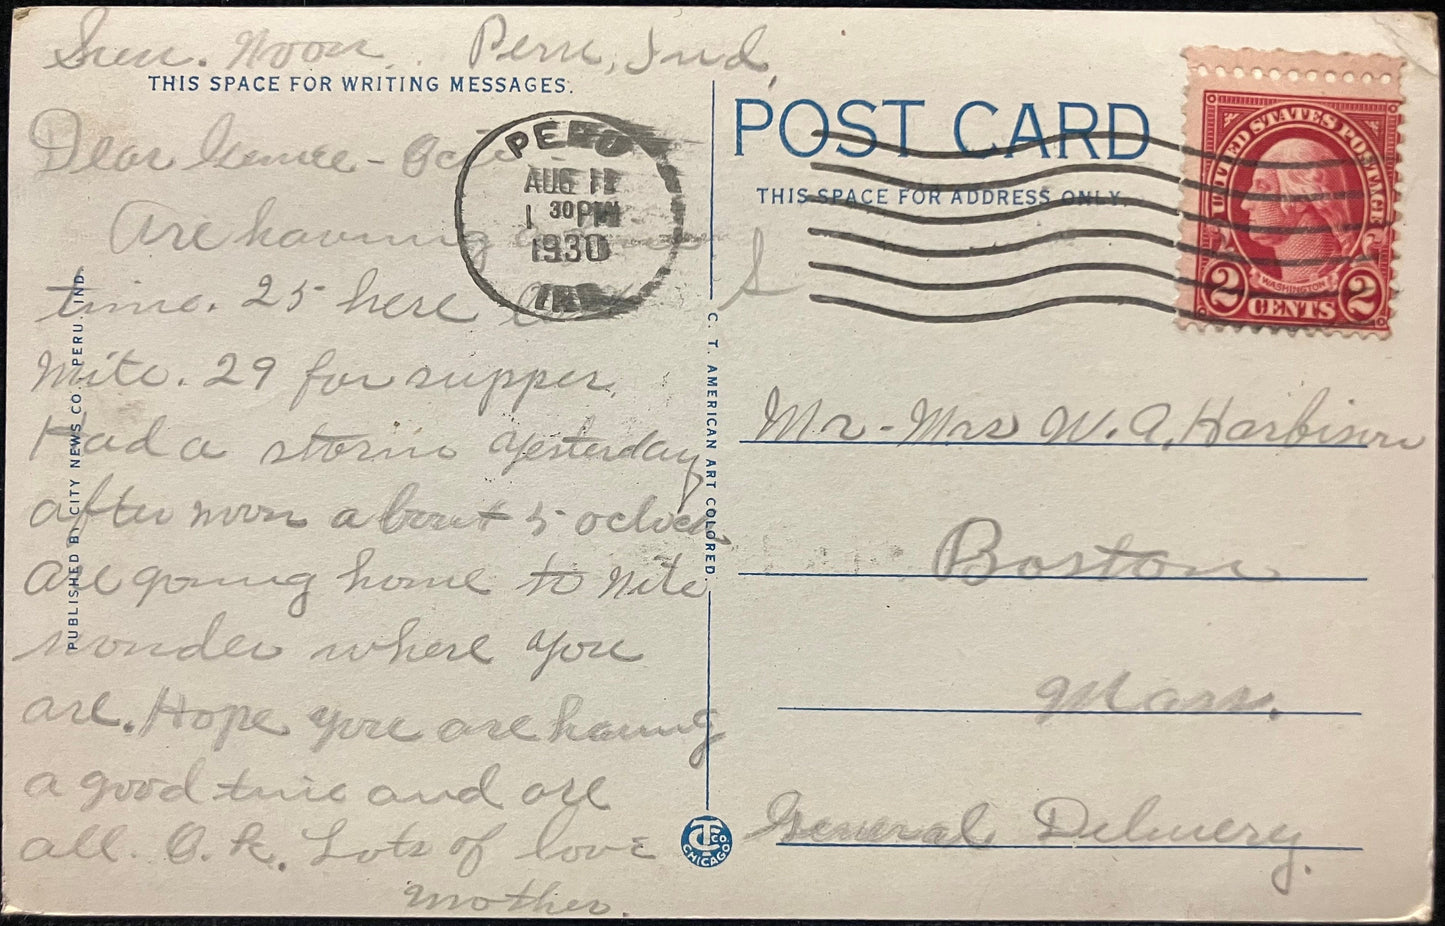 Sun. Noon. Peru, Ind.
THIS SPACE FOR WRITING MESSAGES.
Dear
Are having
time. 25 here
nite. 29 for supper.
Had a storm yesterday
after noon about 5 oclock
are going home to nite
wonder where you
are. Hope you are having
a good time and are
all. O.K. Lots of love
Mother.
PUBLISHED BY CITY NEWS CO., PERU, IND.
PERU
AUG 11
1 30 PM
1930
IND.
C. T. AMERICAN ART COLORED
CT CO. CHICAGO
POST CARD
THIS SPACE FOR ADDRESS ONLY.
UNITED STATES POSTAGE
WASHINGTON
2 CENTS 2
Mr - Mrs W. A. Harbison
Boston
Mass.
General Delivery.